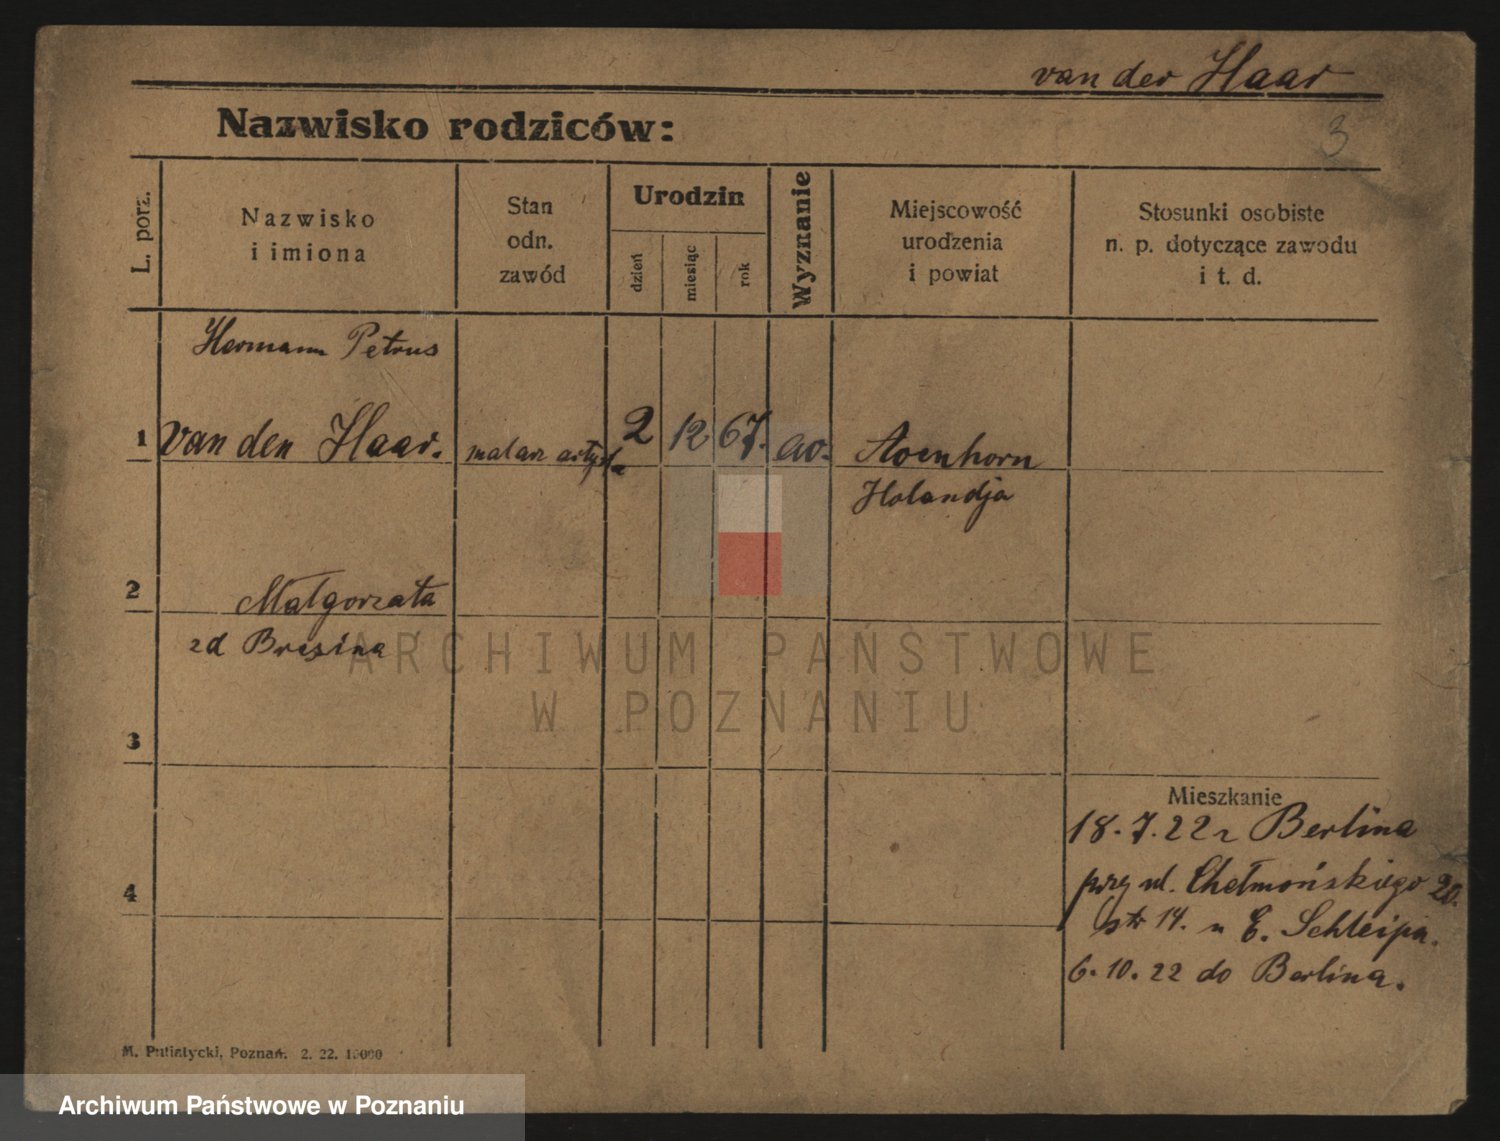 van der Haar
3
Nazwisko rodziców:
L. porz.
Nazwisko
i imiona
Stan
odn.
zawód
Urodzin
dzień
miesiąc
rok
Wyznanie
Miejscowość
urodzenia
i powiat
Stosunki osobiste
n. p. dotyczące zawodu
i t. d.
Hermann Petrus
1 van den Haar. malarz artysta 2 12 67. Avenhorn
Holandja
2 Małgorzata
zd
3
Mieszkanie
18.7.22 z Berlina
przy ul. Chełmońskiego 20.
4
str 14. u E. Schleipa.
6.10.22 do Berlina.
M. Putiatycki, Poznań. 2. 22. 10000
ARCHIWUM PAŃSTWOWE
W POZNANIU
Archiwum Państwowe w Poznaniu